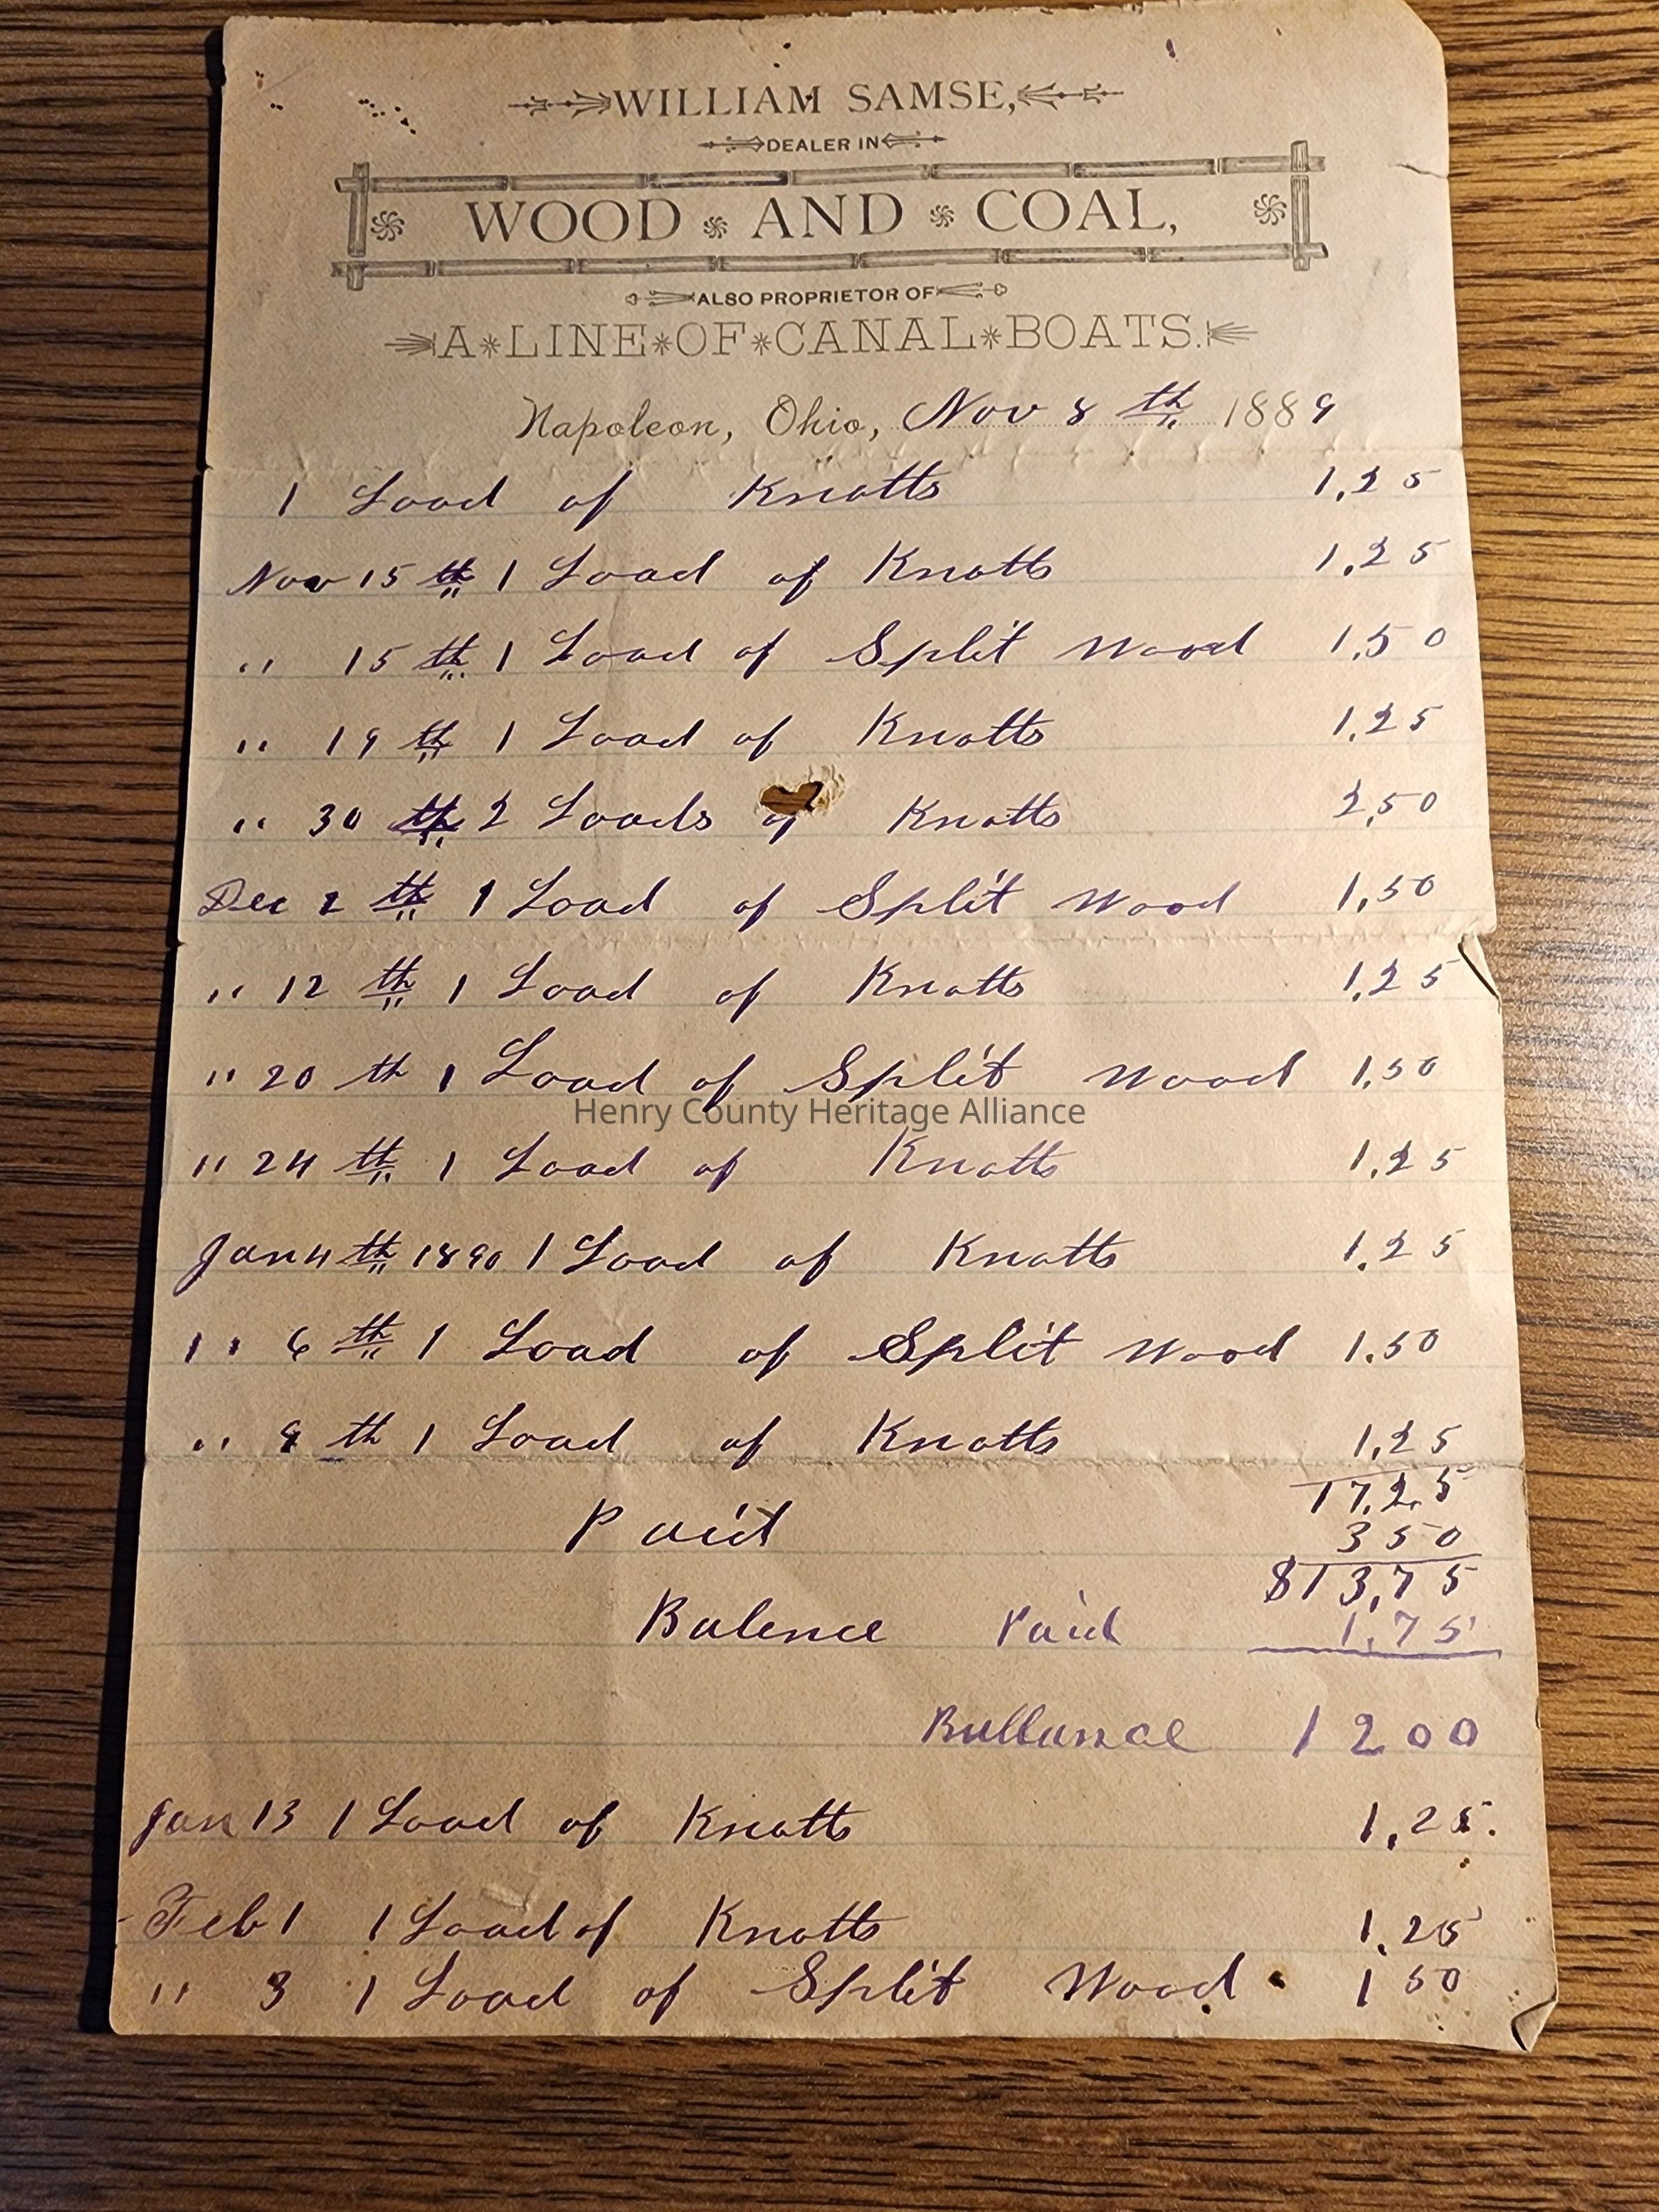 WILLIAM SAMSE,
DEALER IN
WOOD AND COAL,
ALSO PROPRIETOR OF
A LINE OF CANAL BOATS.
Napoleon, Ohio, Nov 8 th 1889
1 Load of Knotts 1,25
Nov 15 th 1 Load of Knotts 1,25
" 15 th 1 Load of Split Wood 1,50
" 19 th 1 Load of Knotts 1,25
" 30 th 2 Loads of Knotts 2,50
Dec 2 th 1 Load of Split Wood 1,50
" 12 th 1 Load of Knotts 1,25
" 20 th 1 Load of Split Wood 1,50
Henry County Heritage Alliance
" 24 th 1 Load of Knotts 1,25
Jan 4 th 1890 1 Load of Knotts 1,25
" 6 th 1 Load of Split Wood 1.50
" 8 th 1 Load of Knotts 1,25
17,25
Paid 350
$13,75
Balence Paid 1,75
Ballance 1200
Jan 13 1 Load of Knotts 1,25.
Feb 1 1 Load of Knotts 1,25
" 3 1 Load of Split Wood 1 50